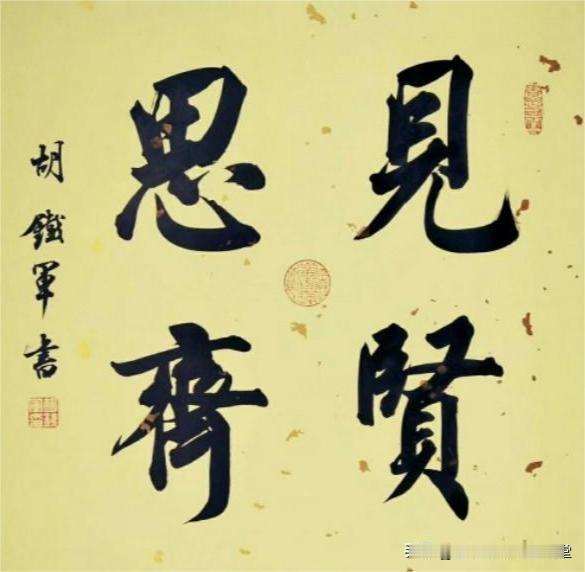 見賢
思齊
胡鐵軍書